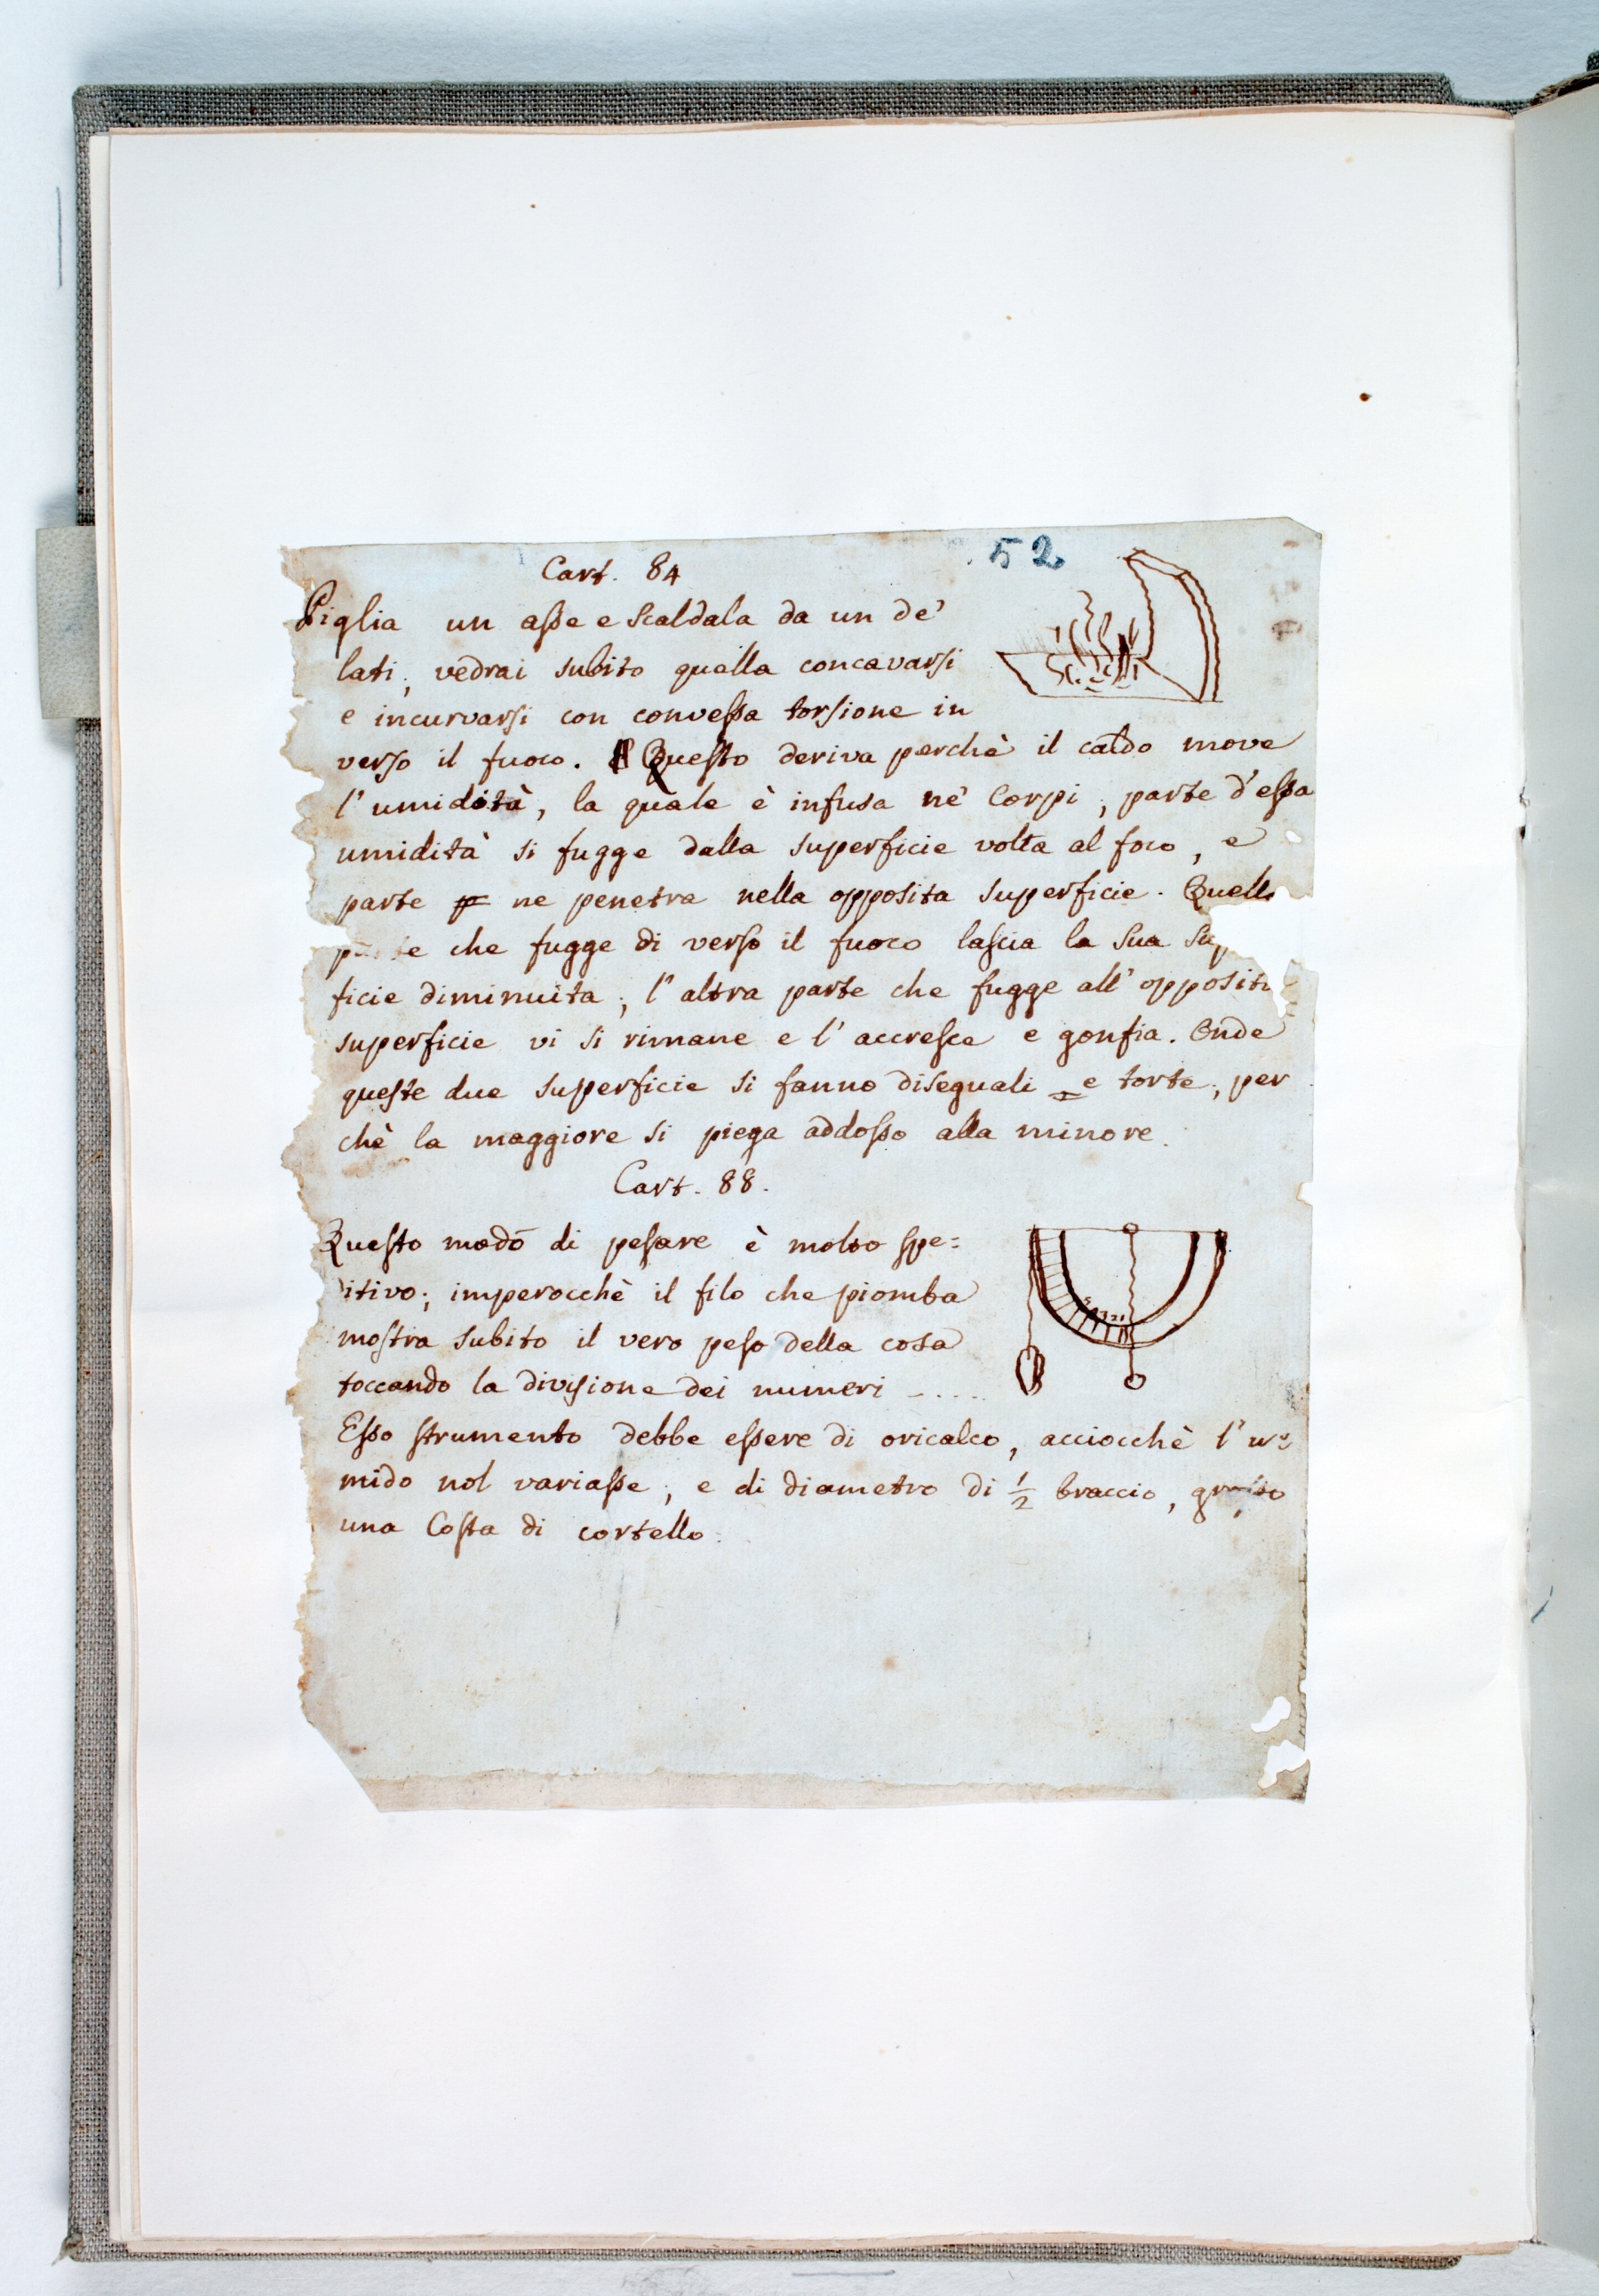 52
Cart. 84
Piglia un asse e scaldala da un de'
lati; vedrai subito quella concavarsi
e incurvarsi con convessa torsione in
verso il fuoco. Questo deriva perchè il caldo move
l'umidità, la quale è infusa ne' Corpi; parte d'essa
umidità si fugge dalla superficie volta al foco, e
parte ne penetra nella opposita superficie. Quella
che fugge di verso il fuoco lascia la sua sup
ficie diminuita; l'altra parte che fugge all'opposita
superficie vi si rimane e l'accresce e gonfia. Onde
queste due superficie si fanno diseguali e torte; per
chè la maggiore si piega addosso alla minore.
Cart. 88.
Questo modo di pesare è molto spe=
ditivo; imperocchè il filo che piomba
mostra subito il vero peso della cosa
toccando la divisione dei numeri - ....
Esso strumento debbe essere di oricalco, acciocchè l'u=
mido nol variasse; e di diametro di 1/2 braccio, grosso
una Costa di cortello.